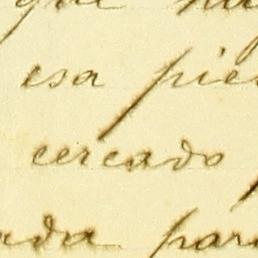 que
esa pie
cercado
ada par